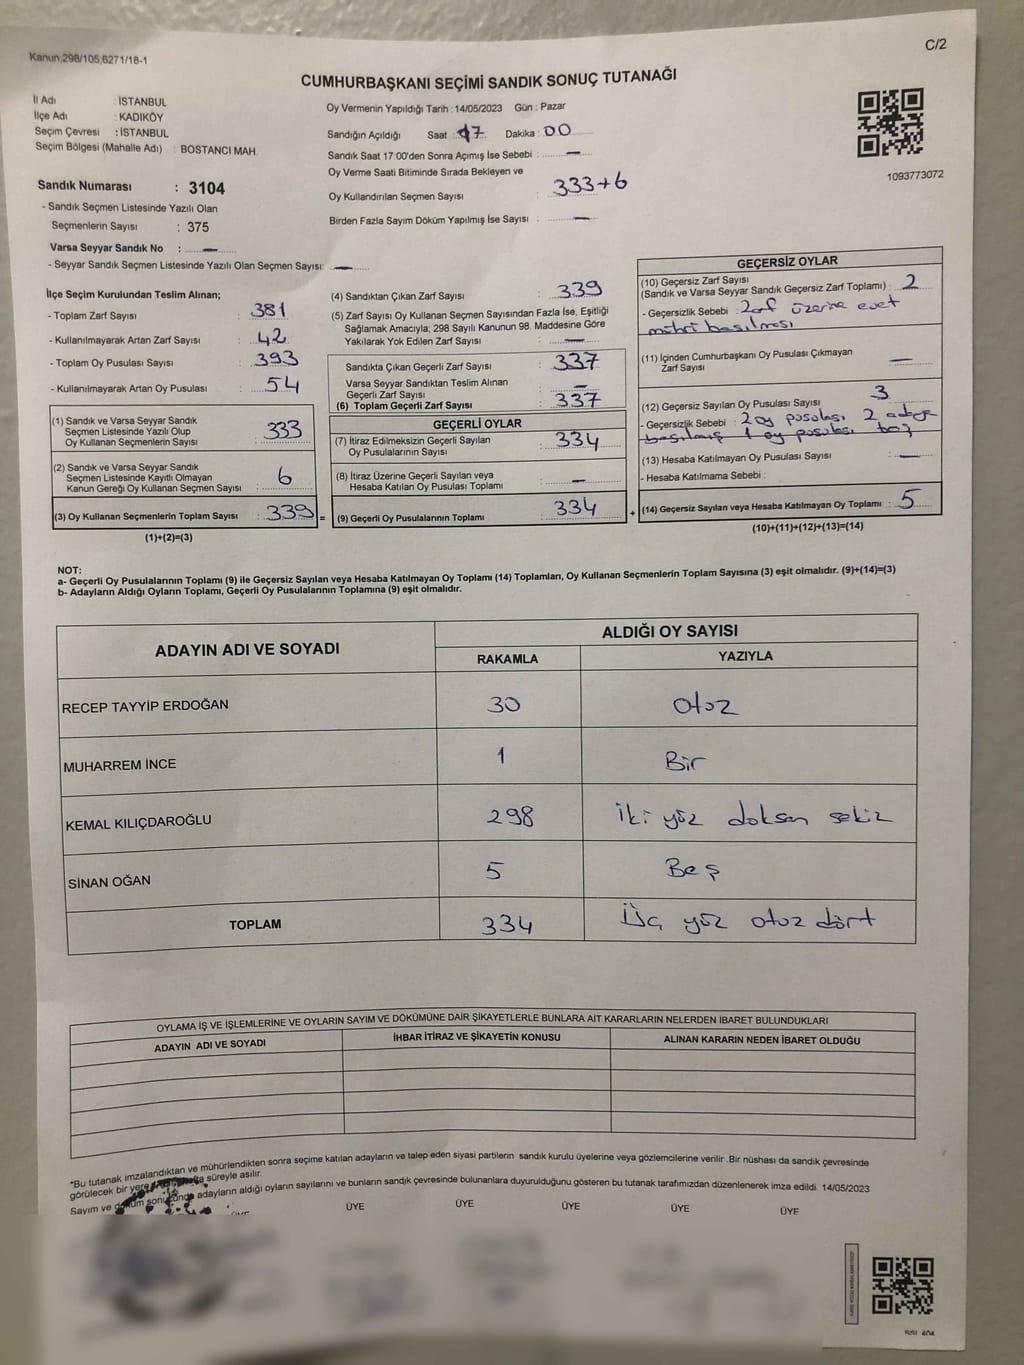 Kanun,298/105,6271/18-1
C/2
CUMHURBAŞKANI SEÇİMİ SANDIK SONUÇ TUTANAĞI
İl Adı : İSTANBUL
İlçe Adı : KADIKÖY
Seçim Çevresi : İSTANBUL
Seçim Bölgesi (Mahalle Adı) : BOSTANCI MAH.
Oy Vermenin Yapıldığı Tarih : 14/05/2023 Gün : Pazar
Sandığın Açıldığı Saat : 17 Dakika : 00
Sandık Saat 17:00'den Sonra Açımış İse Sebebi : —
Oy Verme Saati Bitiminde Sırada Bekleyen ve
Oy Kullandırılan Seçmen Sayısı : 333+6
Birden Fazla Sayım Döküm Yapılmış İse Sayısı : —
1093773072
Sandık Numarası : 3104
- Sandık Seçmen Listesinde Yazılı Olan
Seçmenlerin Sayısı : 375
Varsa Seyyar Sandık No : —
- Seyyar Sandık Seçmen Listesinde Yazılı Olan Seçmen Sayısı: —
İlçe Seçim Kurulundan Teslim Alınan;
- Toplam Zarf Sayısı : 381
- Kullanılmayarak Artan Zarf Sayısı : 42
- Toplam Oy Pusulası Sayısı : 393
- Kullanılmayarak Artan Oy Pusulası : 54
(1) Sandık ve Varsa Seyyar Sandık
Seçmen Listesinde Yazılı Olup
Oy Kullanan Seçmenlerin Sayısı : 333
(2) Sandık ve Varsa Seyyar Sandık
Seçmen Listesinde Kayıtlı Olmayan
Kanun Gereği Oy Kullanan Seçmen Sayısı : 6
(3) Oy Kullanan Seçmenlerin Toplam Sayısı : 339 =
(1)+(2)=(3)
(4) Sandıktan Çıkan Zarf Sayısı : 339
(5) Zarf Sayısı Oy Kullanan Seçmen Sayısından Fazla İse, Eşitliği
Sağlamak Amacıyla; 298 Sayılı Kanunun 98. Maddesine Göre
Yakılarak Yok Edilen Zarf Sayısı : —
Sandıkta Çıkan Geçerli Zarf Sayısı : 337
Varsa Seyyar Sandıktan Teslim Alınan
Geçerli Zarf Sayısı : —
(6) Toplam Geçerli Zarf Sayısı : 337
GEÇERLİ OYLAR
(7) İtiraz Edilmeksizin Geçerli Sayılan
Oy Pusulalarının Sayısı : 334
(8) İtiraz Üzerine Geçerli Sayılan veya
Hesaba Katılan Oy Pusulası Toplamı : —
(9) Geçerli Oy Pusulalarının Toplamı : 334 +
GEÇERSİZ OYLAR
(10) Geçersiz Zarf Sayısı
(Sandık ve Varsa Seyyar Sandık Geçersiz Zarf Toplamı) : 2
- Geçersizlik Sebebi : Zarf üzerine evet
mührü basılması
(11) İçinden Cumhurbaşkanı Oy Pusulası Çıkmayan
Zarf Sayısı : —
(12) Geçersiz Sayılan Oy Pusulası Sayısı : 3
- Geçersizlik Sebebi : 2 oy pusulası 2 adaya
basılmış 1 oy pusulası boş
(13) Hesaba Katılmayan Oy Pusulası Sayısı : —
- Hesaba Katılmama Sebebi :
(14) Geçersiz Sayılan veya Hesaba Katılmayan Oy Toplamı : 5
(10)+(11)+(12)+(13)=(14)
NOT:
a- Geçerli Oy Pusulalarının Toplamı (9) ile Geçersiz Sayılan veya Hesaba Katılmayan Oy Toplamı (14) Toplamları, Oy Kullanan Seçmenlerin Toplam Sayısına (3) eşit olmalıdır. (9)+(14)=(3)
b- Adayların Aldığı Oyların Toplamı, Geçerli Oy Pusulalarının Toplamına (9) eşit olmalıdır.
ADAYIN ADI VE SOYADI
ALDIĞI OY SAYISI
RAKAMLA YAZIYLA
RECEP TAYYİP ERDOĞAN 30 otuz
MUHARREM İNCE 1 Bir
KEMAL KILIÇDAROĞLU 298 iki yüz doksan sekiz
SİNAN OĞAN 5 Beş
TOPLAM 334 Üç yüz otuz dört
OYLAMA İŞ VE İŞLEMLERİNE VE OYLARIN SAYIM VE DÖKÜMÜNE DAİR ŞİKAYETLERLE BUNLARA AİT KARARLARIN NELERDEN İBARET BULUNDUKLARI
ADAYIN ADI VE SOYADI İHBAR İTİRAZ VE ŞİKAYETİN KONUSU ALINAN KARARIN NEDEN İBARET OLDUĞU
*Bu tutanak imzalandıktan ve mühürlendikten sonra seçime katılan adayların ve talep eden siyasi partilerin sandık kurulu üyelerine veya gözlemcilerine verilir .Bir nüshası da sandık çevresinde
görülecek bir yere süreyle asılır.
Sayım ve adayların aldığı oyların sayılarını ve bunların sandık çevresinde bulunanlara duyurulduğunu gösteren bu tutanak tarafımızdan düzenlenerek imza edildi. 14/05/2023
ÜYE ÜYE ÜYE ÜYE ÜYE